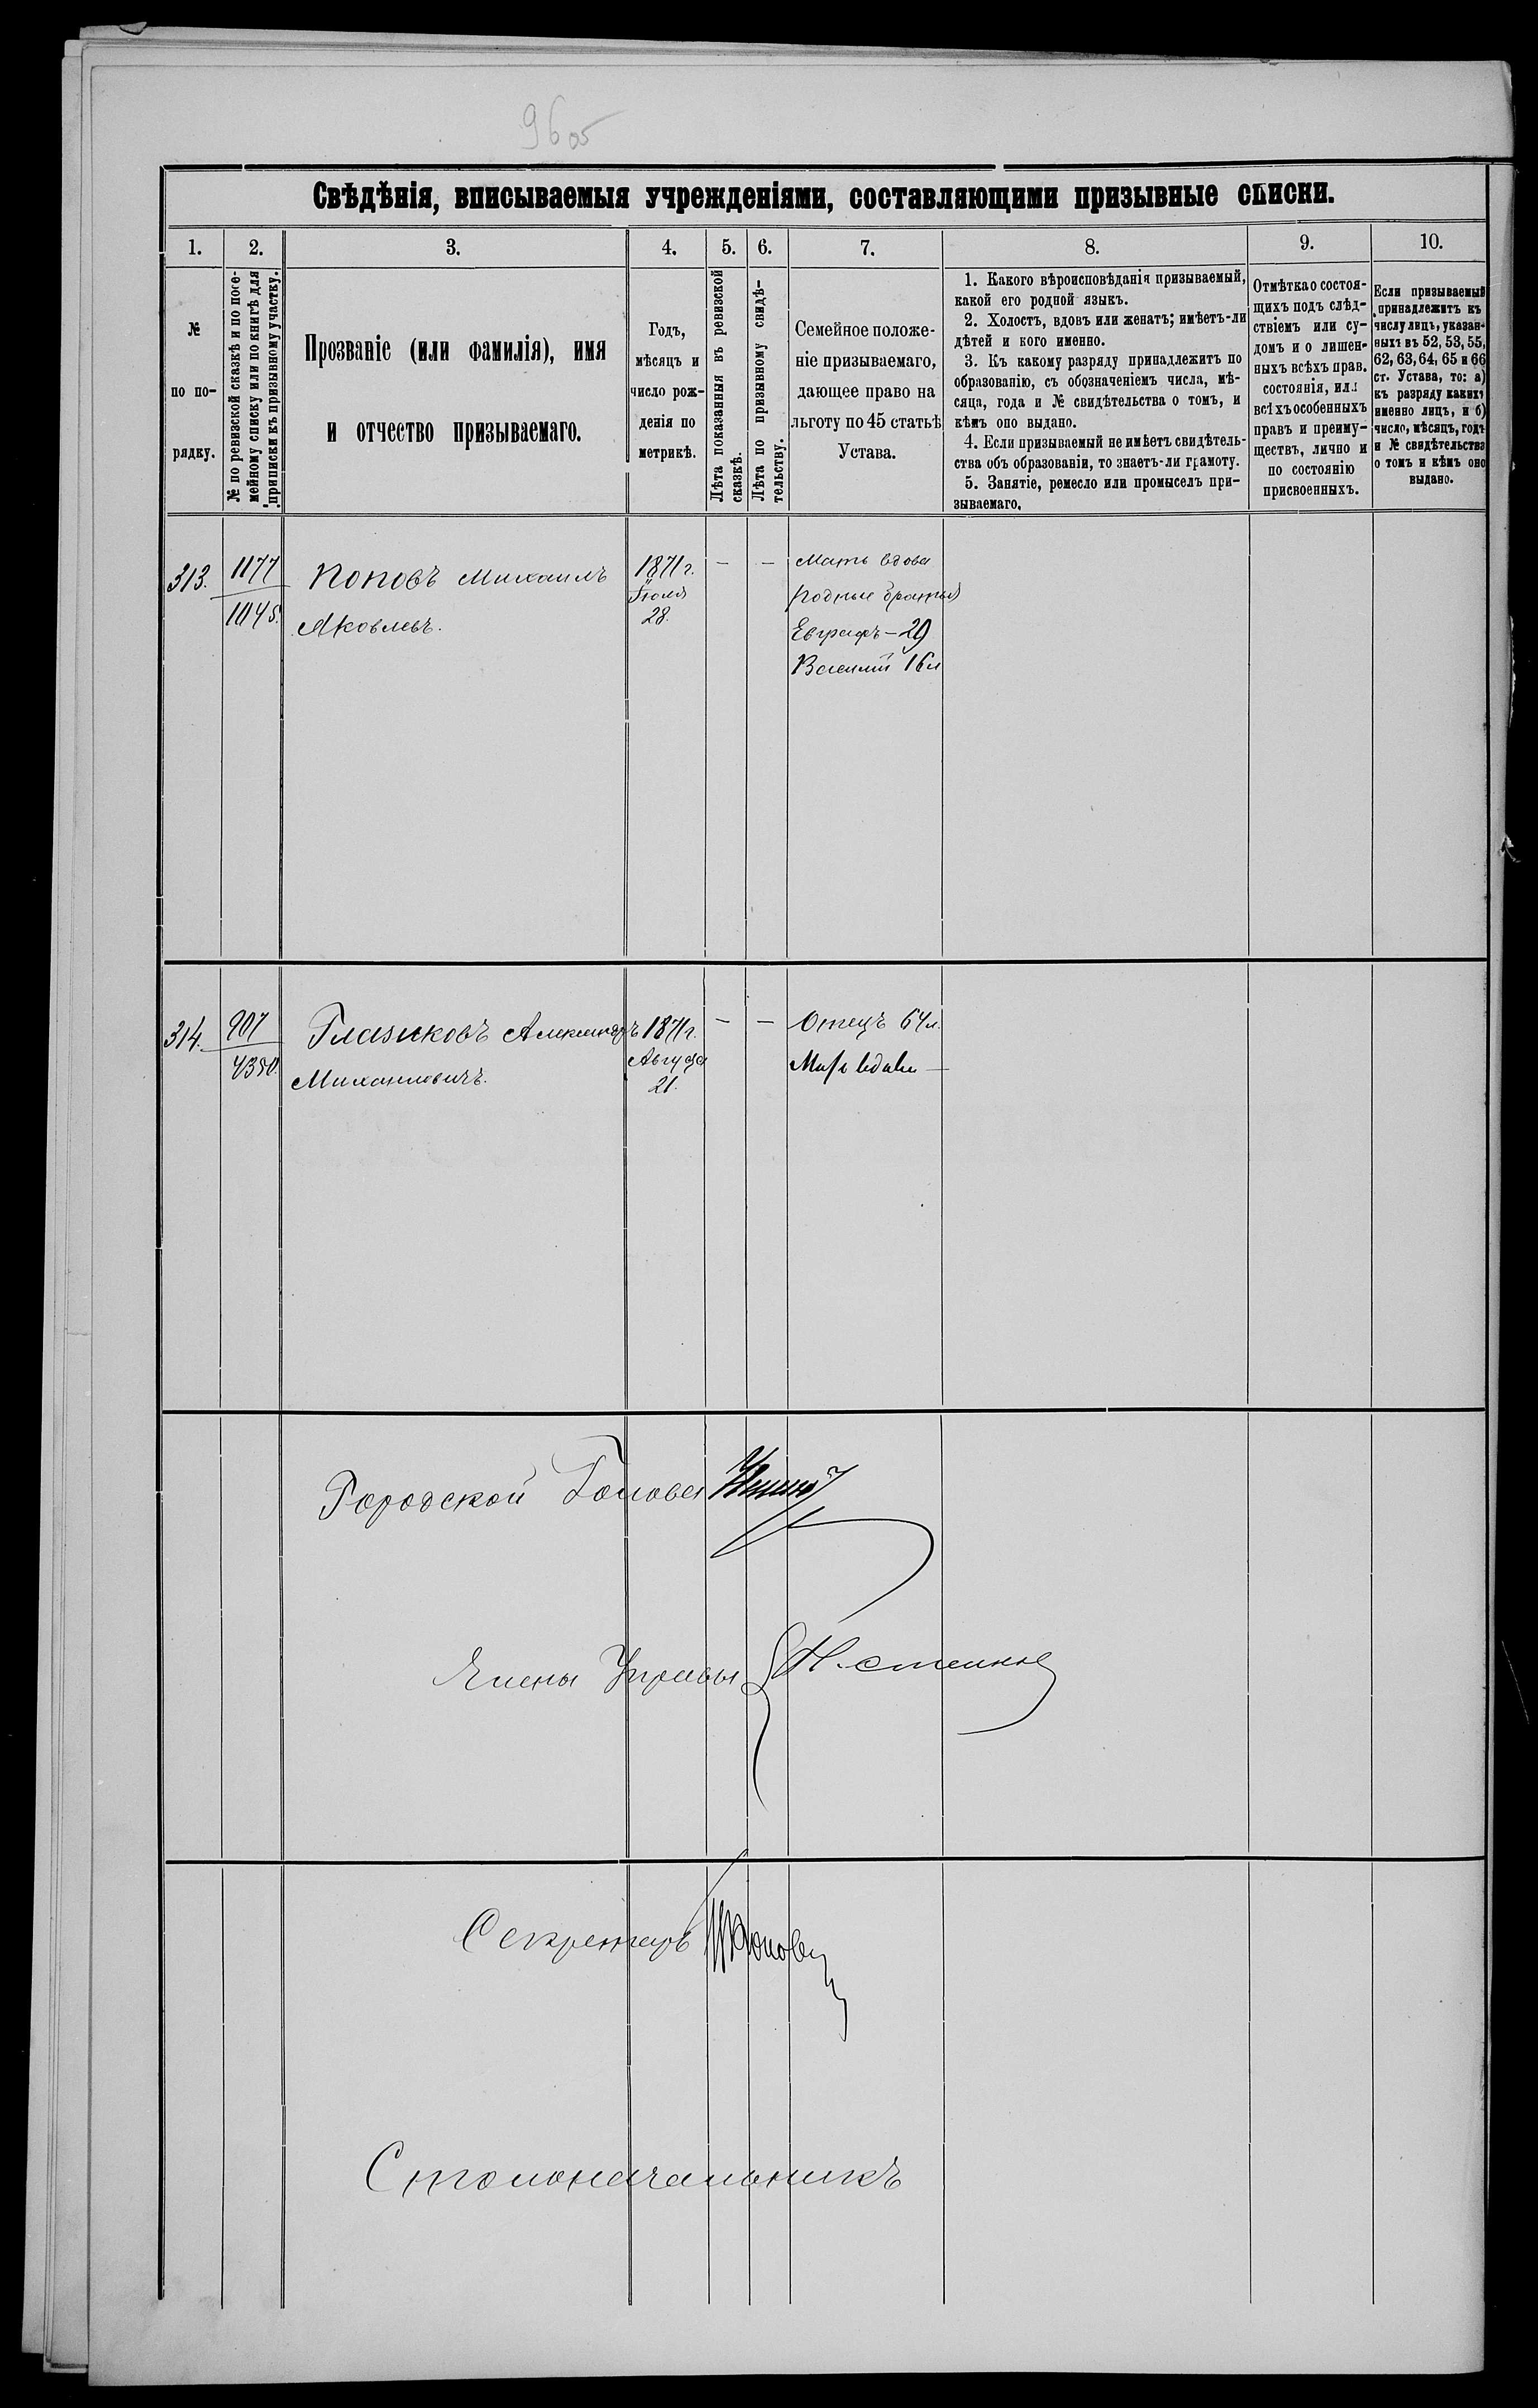 96об
Свѣдѣнія, вписываемыя учрежденіями, составляющими призывные списки.
1. 2. 3. 4. 5. 6. 7. 8. 9. 10.
№
по по-
рядку.
№ по ревизской сказкѣ и по посе-
мейному списку или по книгѣ для
приписки къ призывному участку.
Прозваніе (или фамилія), имя
и отчество призываемаго.
Годъ,
мѣсяцъ и
число рож-
денія по
метрикѣ.
Лѣта показанныя въ ревизской
сказкѣ.
Лѣта по призывному свидѣ-
тельству.
Семейное положе-
ніе призываемаго,
дающее право на
льготу по 45 статьѣ
Устава.
1. Какого вѣроисповѣданія призываемый,
какой его родной языкъ.
2. Холостъ, вдовъ или женатъ; имѣетъ-ли
дѣтей и кого именно.
3. Къ какому разряду принадлежитъ по
образованію, съ обозначеніемъ числа, мѣ-
сяца, года и № свидѣтельства о томъ, и
кѣмъ оно выдано.
4. Если призываемый не имѣетъ свидѣтель-
ства объ образованіи, то знаетъ-ли грамоту.
5. Занятіе, ремесло или промыселъ при-
зываемаго.
Отмѣтка о состоя-
щихъ подъ слѣд-
ствіемъ или су-
домъ и о лишен-
ныхъ всѣхъ прав.
состоянія, или
всѣхъ особенныхъ
правъ и преиму-
ществъ, лично и
по состоянію
присвоенныхъ.
Если призываемый
принадлежитъ къ
числу лицъ, указан-
ныхъ въ 52, 53, 55,
62, 63, 64, 65 и 66
ст. Устава, то: а)
къ разряду какихъ
именно лицъ, и б)
число, мѣсяцъ, годъ
и № свидѣтельства
о томъ и кѣмъ оно
выдано.
313.
1177
1045.
Поповъ Михаилъ
Яковлевъ.
1871 г.
Іюля
28.
— —
Мать вдова
родные братья
Евграфъ – 29
Василій 16 л
314.
907
4350.
Глазковъ Александръ
Михаиловичъ.
1871 г.
Августа
21.
— —
Отецъ 64 л.
Мать вдова —
Городской Голова
Члены Управы
Секретарь Поповъ
Столоначальникъ